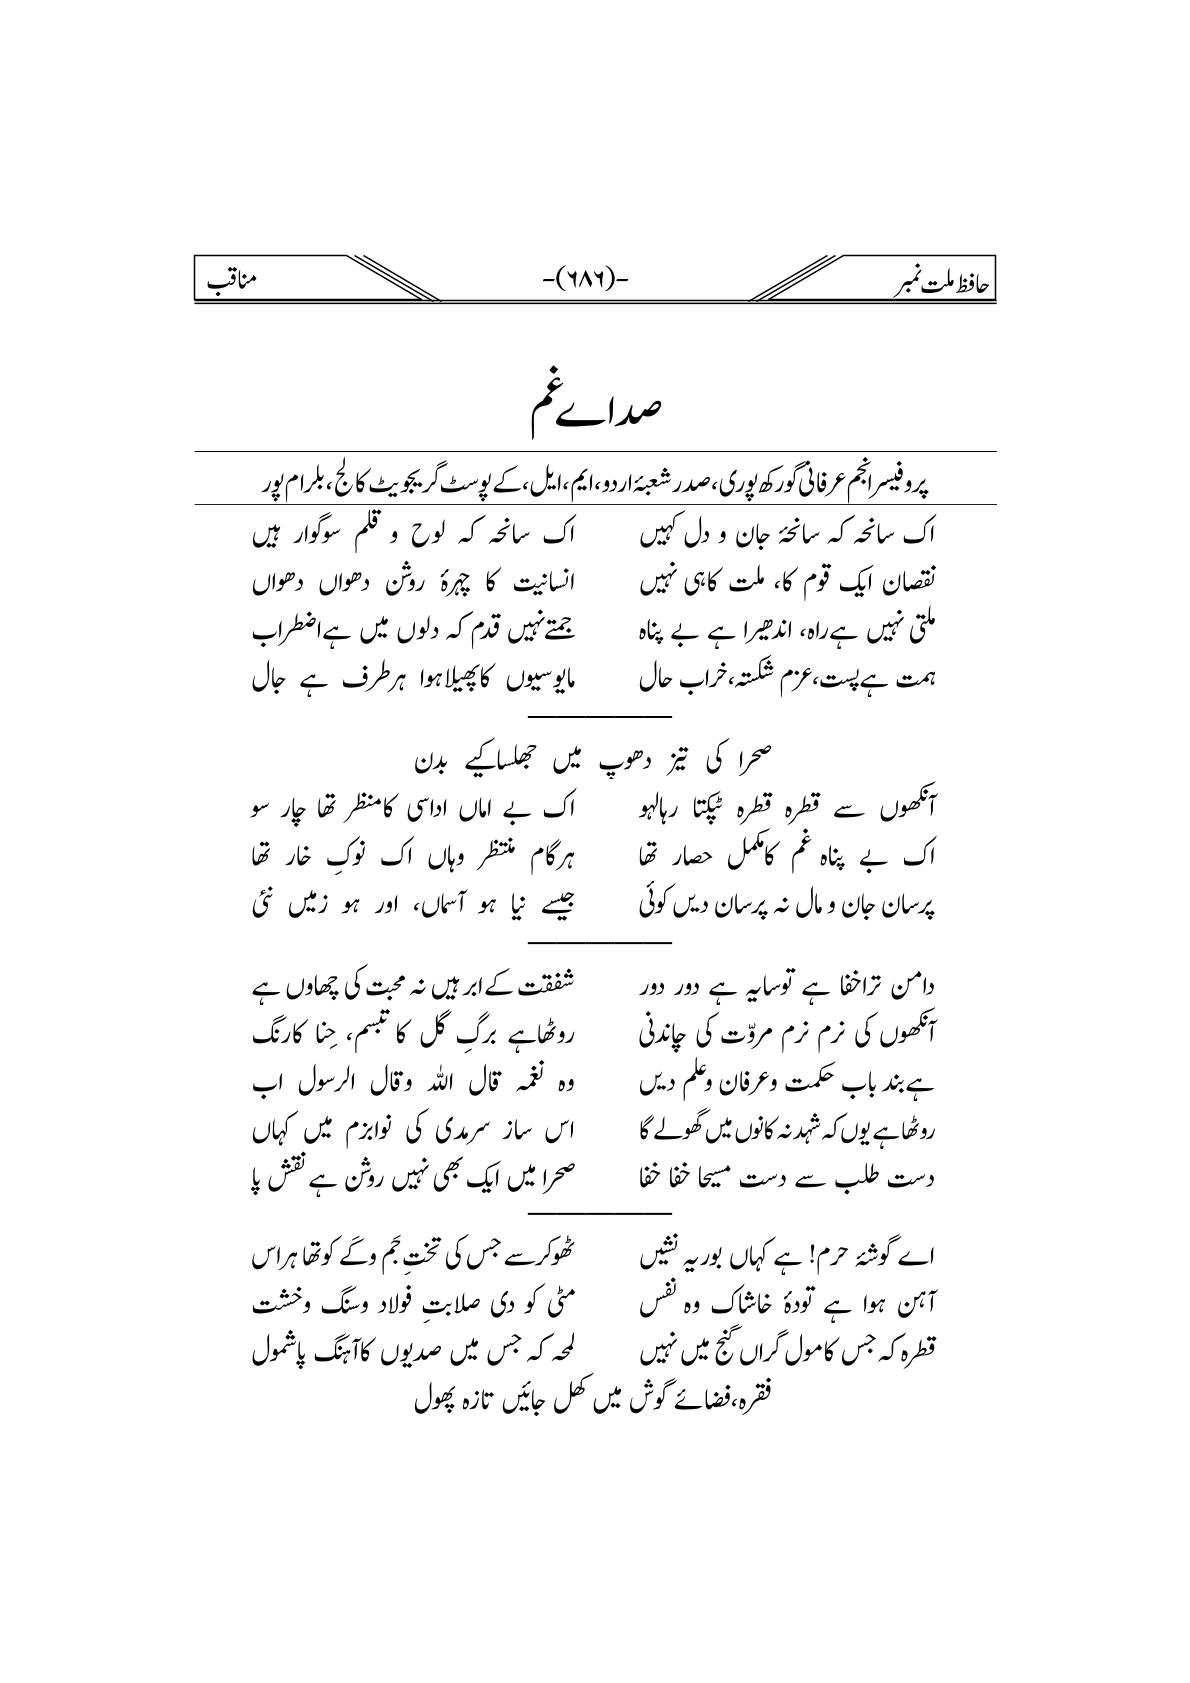 حافظ ملت نمبر -(۶۸۶)- مناقب
صداے غم
پروفیسر انجم عرفانی گورکھ پوری، صدر شعبۂ اردو، ایم، ایل، کے پوسٹ گریجویٹ کالج، بلرام پور
اک سانحہ کہ سانحۂ جان و دل کہیں اک سانحہ کہ لوح و قلم سوگوار ہیں
نقصان ایک قوم کا، ملت کاہی نہیں انسانیت کا چہرۂ روشن دھواں دھواں
ملتی نہیں ہےراہ، اندھیرا ہے بے پناہ جمتےنہیں قدم کہ دلوں میں ہےاضطراب
ہمت ہےپست،عزم شکستہ،خراب حال مایوسیوں کاپھیلاہوا ہرطرف ہے جال
صحرا کی تیز دھوپ میں جھلساکیے بدن
آنکھوں سے قطرہ قطرہ ٹپکتا رہالہو اک بے اماں اداسی کامنظر تھا چار سو
اک بے پناہ غم کامکمل حصار تھا ہرگام منتظر وہاں اک نوکِ خار تھا
پرسان جان و مال نہ پرسان دیں کوئی جیسے نیا ہو آسماں، اور ہو زمیں نئی
دامن تراخفا ہے توسایہ ہے دور دور شفقت کے ابر ہیں نہ محبت کی چھاوں ہے
آنکھوں کی نرم نرم مروّت کی چاندنی روٹھاہے برگِ گل کا تبسم، حِنا کارنگ
ہےبند باب حکمت وعرفان وعلم دیں وہ نغمہ قال اللہ وقال الرسول اب
روٹھاہے یوں کہ شہد نہ کانوں میں گھولے گا اس ساز سرمدی کی نوابزم میں کہاں
دست طلب سے دست مسیحا خفا خفا صحرا میں ایک بھی نہیں روشن ہے نقش پا
اے گوشۂ حرم! ہے کہاں بوریہ نشیں ٹھوکرسے جس کی تختِ جَم وکَے کوتھا ہراس
آہن ہوا ہے تودۂ خاشاک وہ نفس مٹی کو دی صلابتِ فولاد وسنگ وخشت
قطرہ کہ جس کامول گراں گنج میں نہیں لمحہ کہ جس میں صدیوں کاآہنگ پاشمول
فقرہ،فضائے گوش میں کھل جائیں تازہ پھول